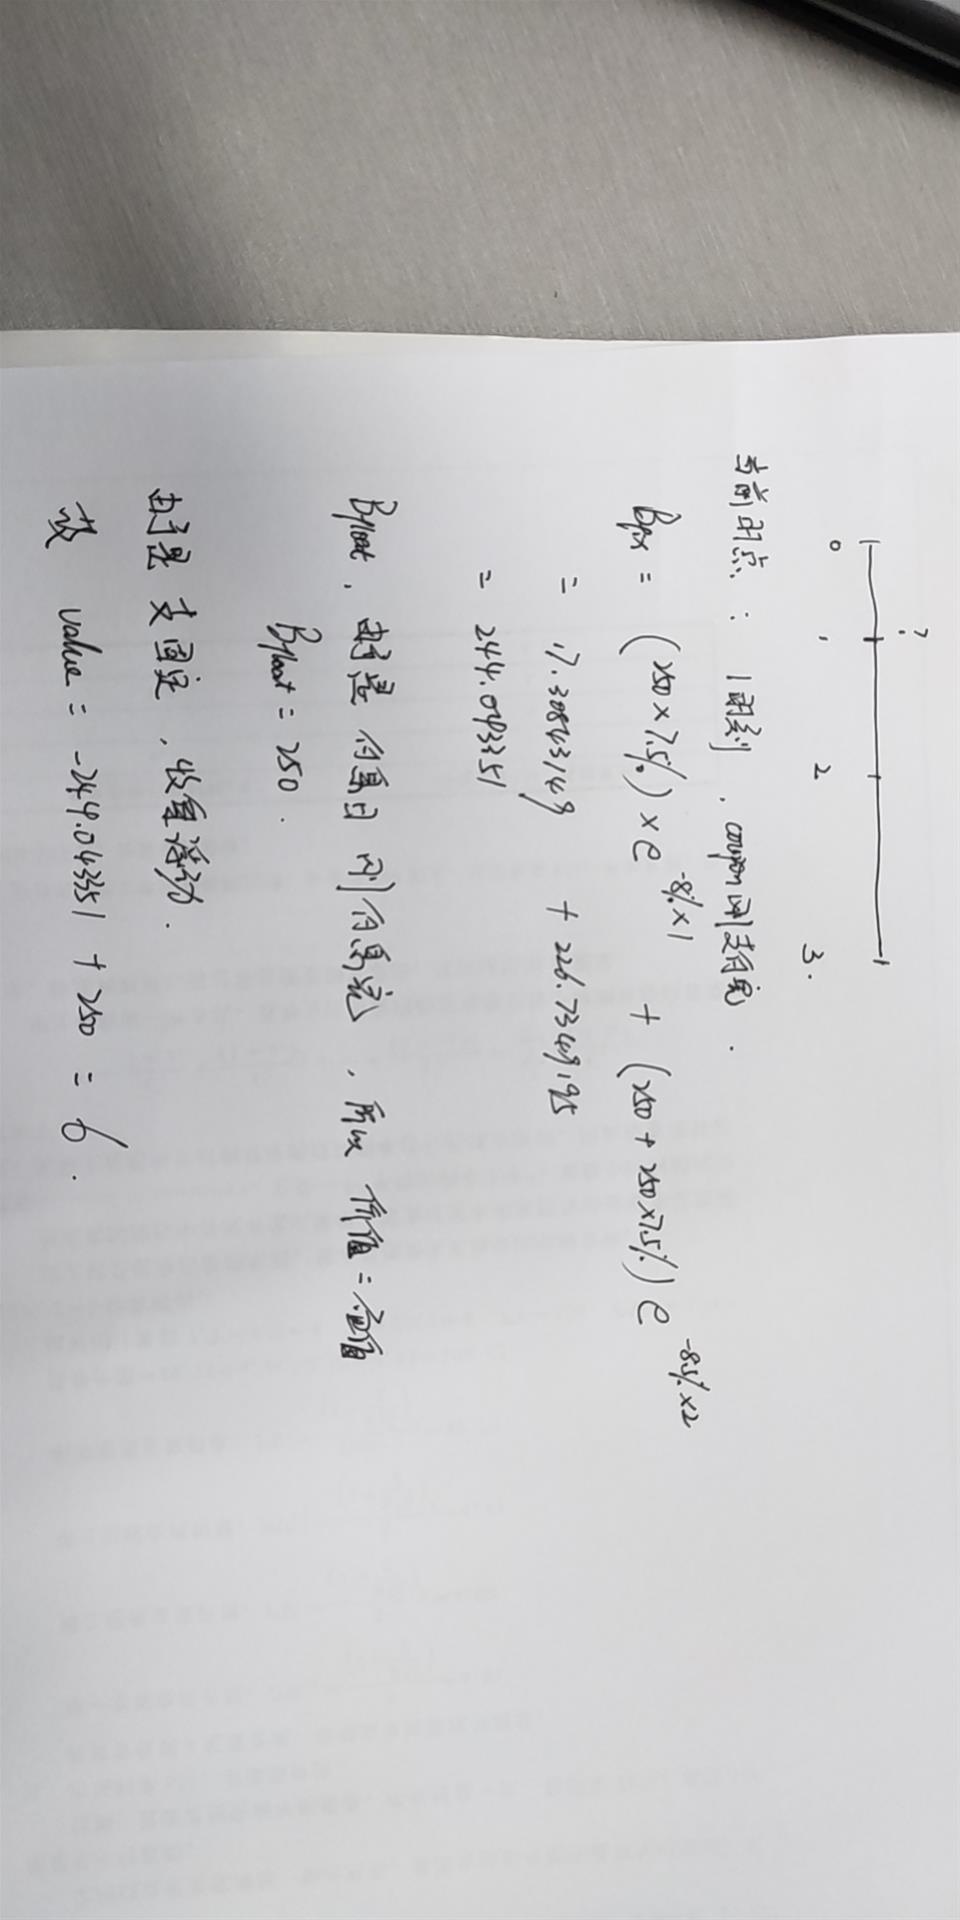 ?
0 1 2 3.
当前时点: 1时刻, coupon刚支付完.
Bfix = (250×7.5%)×e^-8%×1 + (250+250×7.5%)e^-8.5%×2
= 17.30843149 + 226.7349195
= 244.043351
Bfloat, 由于是付息日刚付息完, 所以价值=面值
Bfloat = 250.
由于是支固定, 收取浮动.
故 value = -244.043351 + 250 = 6.